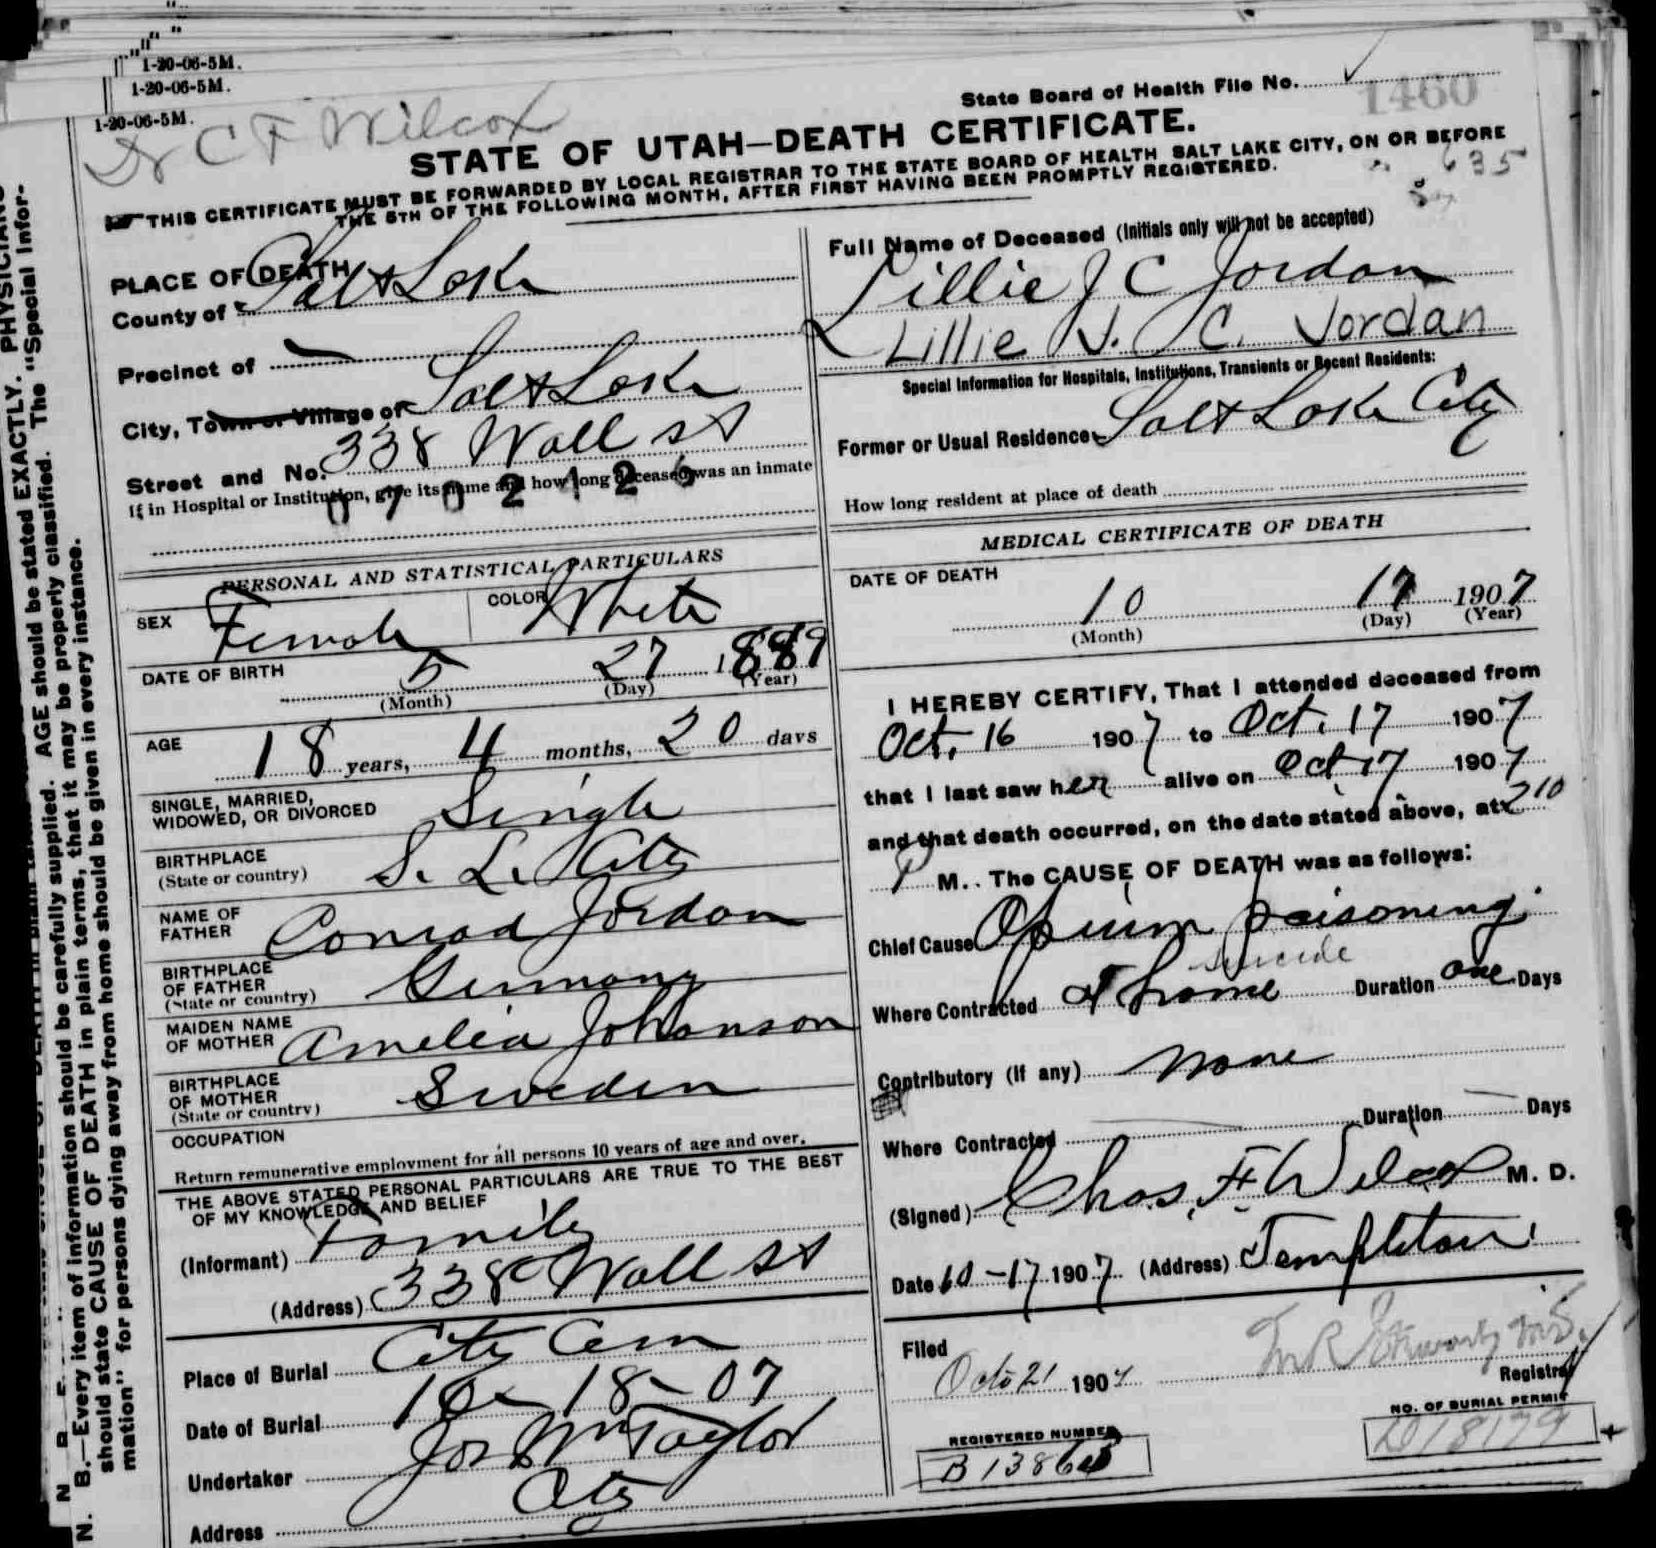 1-20-06-5M.
1-20-06-5M.
1-20-06-5M.
Dr C F Wilcox
State Board of Health File No.
1460
STATE OF UTAH—DEATH CERTIFICATE.
THIS CERTIFICATE MUST BE FORWARDED BY LOCAL REGISTRAR TO THE STATE BOARD OF HEALTH SALT LAKE CITY, ON OR BEFORE
THE 5TH OF THE FOLLOWING MONTH, AFTER FIRST HAVING BEEN PROMPTLY REGISTERED.
635
PLACE OF DEATH
County of Salt Lake
Precinct of
City, Town or Village of Salt Lake
Street and No. 338 Wall st
If in Hospital or Institution, give its name and how long deceased was an inmate
PERSONAL AND STATISTICAL PARTICULARS
SEX Female
COLOR White
DATE OF BIRTH 5 27 1889
(Month) (Day) (Year)
AGE 18 years, 4 months, 20 days
SINGLE, MARRIED,
WIDOWED, OR DIVORCED Single
BIRTHPLACE
(State or country) S. L. City
NAME OF
FATHER Conrad Jordan
BIRTHPLACE
OF FATHER
(State or country) Germany
MAIDEN NAME
OF MOTHER Amelia Johanson
BIRTHPLACE
OF MOTHER
(State or country) Sweden
OCCUPATION
Return remunerative employment for all persons 10 years of age and over.
THE ABOVE STATED PERSONAL PARTICULARS ARE TRUE TO THE BEST
OF MY KNOWLEDGE AND BELIEF
(Informant) Family
(Address) 338 Wall st
Place of Burial City Cem
Date of Burial 10 - 18 - 07
Undertaker Jos Wm Taylor
Address City
Full Name of Deceased (Initials only will not be accepted)
Lillie J C Jordan
Lillie J. C. Jordan
Special Information for Hospitals, Institutions, Transients or Recent Residents:
Former or Usual Residence Salt Lake City
How long resident at place of death
MEDICAL CERTIFICATE OF DEATH
DATE OF DEATH
10 17 1907
(Month) (Day) (Year)
I HEREBY CERTIFY, That I attended deceased from
Oct. 16 1907 to Oct. 17 1907
that I last saw her alive on Oct 17 1907
and that death occurred, on the date stated above, at 2 10
P M. The CAUSE OF DEATH was as follows:
Chief Cause Opium poisoning
suicide
Where Contracted At home Duration one Days
Contributory (if any) none
Where Contracted Duration Days
(Signed) Chas. F. Wilcox M. D.
Date 10-17 1907 (Address) Templeton
Filed
Oct 21 1907
Registrar
REGISTERED NUMBER
NO. OF BURIAL PERMIT
N. B.—Every item of information should be carefully supplied. AGE should be stated EXACTLY. PHYSICIANS
should state CAUSE OF DEATH in plain terms, that it may be properly classified. The "Special Infor-
mation" for persons dying away from home should be given in every instance.